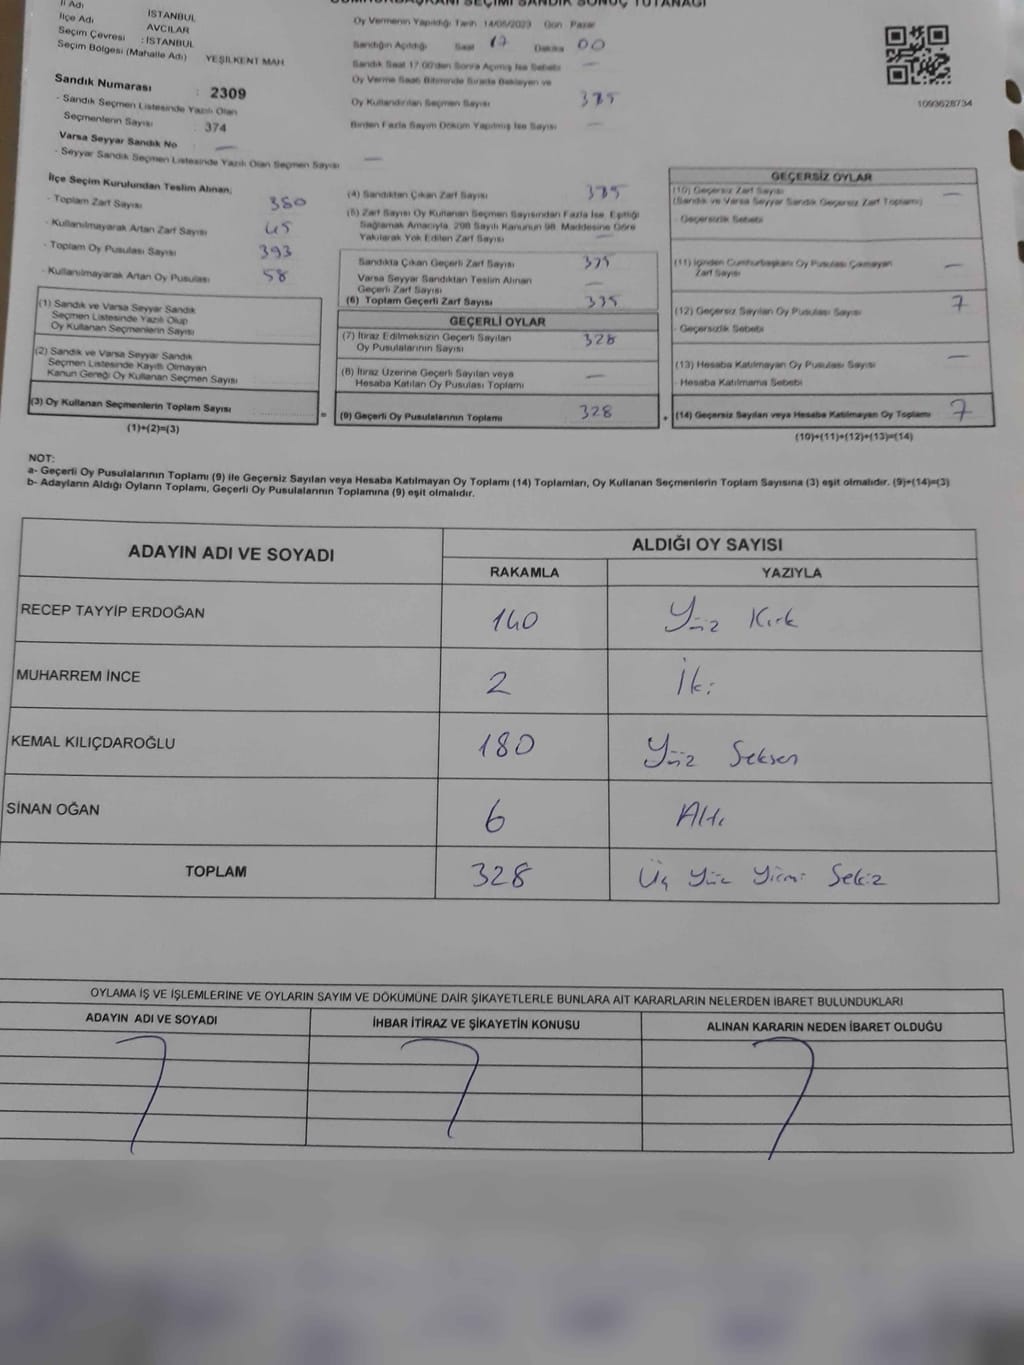 CUMHURBAŞKANI SEÇİMİ SANDIK SONUÇ TUTANAĞI
İl Adı İSTANBUL
İlçe Adı AVCILAR
Seçim Çevresi : İSTANBUL
Seçim Bölgesi (Mahalle Adı) YEŞİLKENT MAH
Sandık Numarası : 2309
- Sandık Seçmen Listesinde Yazılı Olan
Seçmenlerin Sayısı : 374
Varsa Seyyar Sandık No : —
- Seyyar Sandık Seçmen Listesinde Yazılı Olan Seçmen Sayısı —
Oy Vermenin Yapıldığı Tarih 14/05/2023 Gün Pazar
Sandığın Açıldığı Saat 17 Dakika 00
Sandık Saat 17:00'den Sonra Açılmış İse Sebebi —
Oy Verme Saati Bitiminde Sırada Bekleyen ve
Oy Kullandırılan Seçmen Sayısı 335
Birden Fazla Sayım Döküm Yapılmış İse Sayısı —
1093628734
İlçe Seçim Kurulundan Teslim Alınan;
- Toplam Zarf Sayısı 380
- Kullanılmayarak Artan Zarf Sayısı 45
- Toplam Oy Pusulası Sayısı 393
- Kullanılmayarak Artan Oy Pusulası 58
(1) Sandık ve Varsa Seyyar Sandık
Seçmen Listesinde Yazılı Olup
Oy Kullanan Seçmenlerin Sayısı
(2) Sandık ve Varsa Seyyar Sandık
Seçmen Listesinde Kayıtlı Olmayan
Kanun Gereği Oy Kullanan Seçmen Sayısı
(3) Oy Kullanan Seçmenlerin Toplam Sayısı =
(1)+(2)=(3)
(4) Sandıktan Çıkan Zarf Sayısı 335
(5) Zarf Sayısı Oy Kullanan Seçmen Sayısından Fazla İse, Eşitliği
Sağlamak Amacıyla, 298 Sayılı Kanunun 98. Maddesine Göre
Yakılarak Yok Edilen Zarf Sayısı —
Sandıkta Çıkan Geçerli Zarf Sayısı 335
Varsa Seyyar Sandıktan Teslim Alınan
Geçerli Zarf Sayısı —
(6) Toplam Geçerli Zarf Sayısı 335
GEÇERLİ OYLAR
(7) İtiraz Edilmeksizin Geçerli Sayılan
Oy Pusulalarının Sayısı 328
(8) İtiraz Üzerine Geçerli Sayılan veya
Hesaba Katılan Oy Pusulası Toplamı —
(9) Geçerli Oy Pusulalarının Toplamı 328 +
GEÇERSİZ OYLAR
(10) Geçersiz Zarf Sayısı —
(Sandık ve Varsa Seyyar Sandık Geçersiz Zarf Toplamı)
- Geçersizlik Sebebi
(11) İçinden Cumhurbaşkanı Oy Pusulası Çıkmayan
Zarf Sayısı —
(12) Geçersiz Sayılan Oy Pusulası Sayısı 7
- Geçersizlik Sebebi
(13) Hesaba Katılmayan Oy Pusulası Sayısı —
- Hesaba Katılmama Sebebi
(14) Geçersiz Sayılan veya Hesaba Katılmayan Oy Toplamı 7
(10)+(11)+(12)+(13)=(14)
NOT:
a- Geçerli Oy Pusulalarının Toplamı (9) ile Geçersiz Sayılan veya Hesaba Katılmayan Oy Toplamı (14) Toplamları, Oy Kullanan Seçmenlerin Toplam Sayısına (3) eşit olmalıdır. (9)+(14)=(3)
b- Adayların Aldığı Oyların Toplamı, Geçerli Oy Pusulalarının Toplamına (9) eşit olmalıdır.
ADAYIN ADI VE SOYADI ALDIĞI OY SAYISI
RAKAMLA YAZIYLA
RECEP TAYYİP ERDOĞAN 140 Yüz Kırk
MUHARREM İNCE 2 İki
KEMAL KILIÇDAROĞLU 180 Yüz Seksen
SİNAN OĞAN 6 Altı
TOPLAM 328 Üç Yüz Yirmi Sekiz
OYLAMA İŞ VE İŞLEMLERİNE VE OYLARIN SAYIM VE DÖKÜMÜNE DAİR ŞİKAYETLERLE BUNLARA AİT KARARLARIN NELERDEN İBARET BULUNDUKLARI
ADAYIN ADI VE SOYADI İHBAR İTİRAZ VE ŞİKAYETİN KONUSU ALINAN KARARIN NEDEN İBARET OLDUĞU